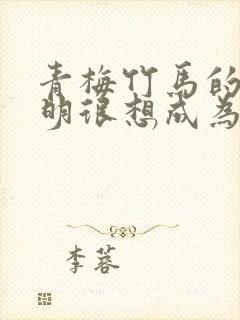 青梅竹馬的
明很想成為
李蓉